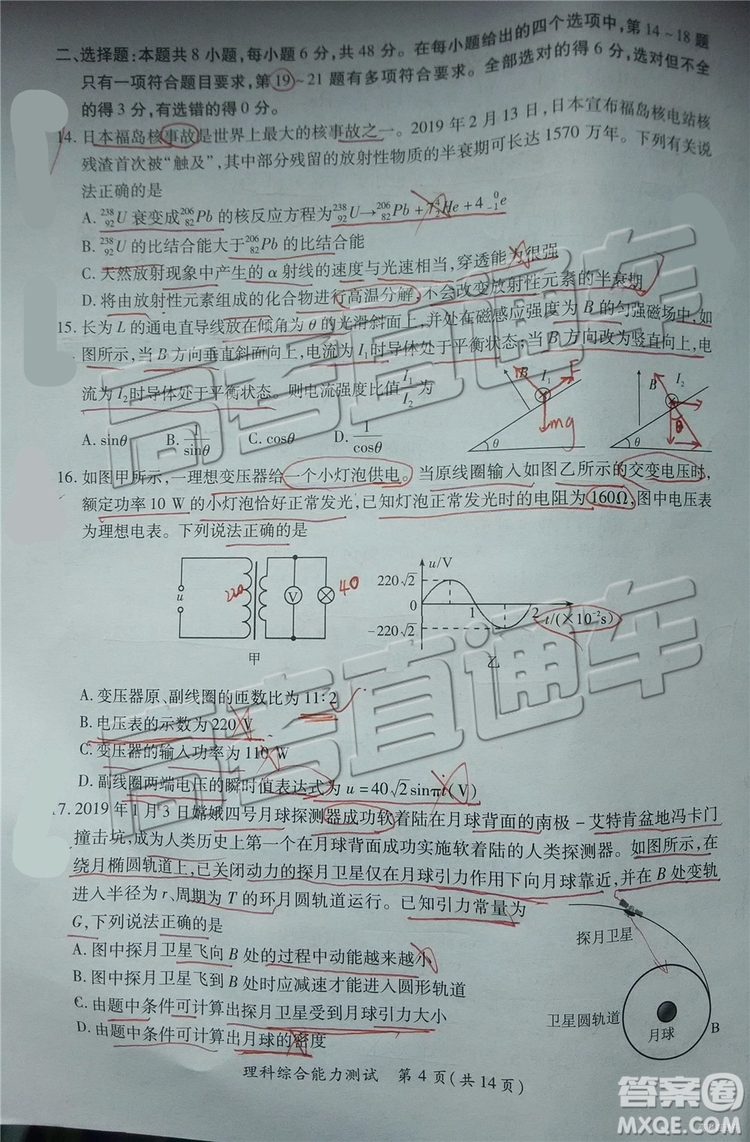 二、选择题:本题共8小题,每小题6分,共48分。在每小题给出的四个选项中,第14~18题
只有一项符合题目要求,第19~21题有多项符合要求。全部选对的得6分,选对但不全
的得3分,有选错的得0分。
14.日本福岛核事故是世界上最大的核事故之一。2019年2月13日,日本宣布福岛核电站核
残渣首次被“触及”,其中部分残留的放射性物质的半衰期可长达1570万年。下列有关说
法正确的是
A. ²³⁸₉₂U 衰变成²⁰⁶₈₂Pb 的核反应方程为²³⁸₉₂U→²⁰⁶₈₂Pb+7⁴₂He+4⁰₋₁e
B. ²³⁸₉₂U 的比结合能大于²⁰⁶₈₂Pb 的比结合能
C. 天然放射现象中产生的α射线的速度与光速相当,穿透能力很强
D. 将由放射性元素组成的化合物进行高温分解,不会改变放射性元素的半衰期
15.长为L的通电直导线放在倾角为θ的光滑斜面上,并处在磁感应强度为B的匀强磁场中,如
图所示,当B方向垂直斜面向上,电流为I₁时导体处于平衡状态;当B方向改为竖直向上,电
流为I₂时导体处于平衡状态。则电流强度比值I₁/I₂为
A. sinθ B. 1/sinθ C. cosθ D. 1/cosθ
B I₁ F
mg
θ
B I₂
θ
θ
16.如图甲所示,一理想变压器给一个小灯泡供电。当原线圈输入如图乙所示的交变电压时,
额定功率10 W的小灯泡恰好正常发光,已知灯泡正常发光时的电阻为160Ω,图中电压表
为理想电表。下列说法正确的是
u
220
V
40
甲
u/V
220√2
0
-220√2
1
2
t/(×10⁻²s)
乙
A. 变压器原、副线圈的匝数比为11∶2
B. 电压表的示数为220 V
C. 变压器的输入功率为110 W
D. 副线圈两端电压的瞬时值表达式为u=40√2sinπt(V)
7. 2019年1月3日嫦娥四号月球探测器成功软着陆在月球背面的南极-艾特肯盆地冯卡门
撞击坑,成为人类历史上第一个在月球背面成功实施软着陆的人类探测器。如图所示,在
绕月椭圆轨道上,已关闭动力的探月卫星仅在月球引力作用下向月球靠近,并在B处变轨
进入半径为r、周期为T的环月圆轨道运行。已知引力常量为
G,下列说法正确的是
A. 图中探月卫星飞向B处的过程中动能越来越小
B. 图中探月卫星飞到B处时应减速才能进入圆形轨道
C. 由题中条件可计算出探月卫星受到月球引力大小
D. 由题中条件可计算出月球的密度
探月卫星
卫星圆轨道
月球
B
理科综合能力测试 第4页(共14页)
高考直通车
高考直通车
答案圈